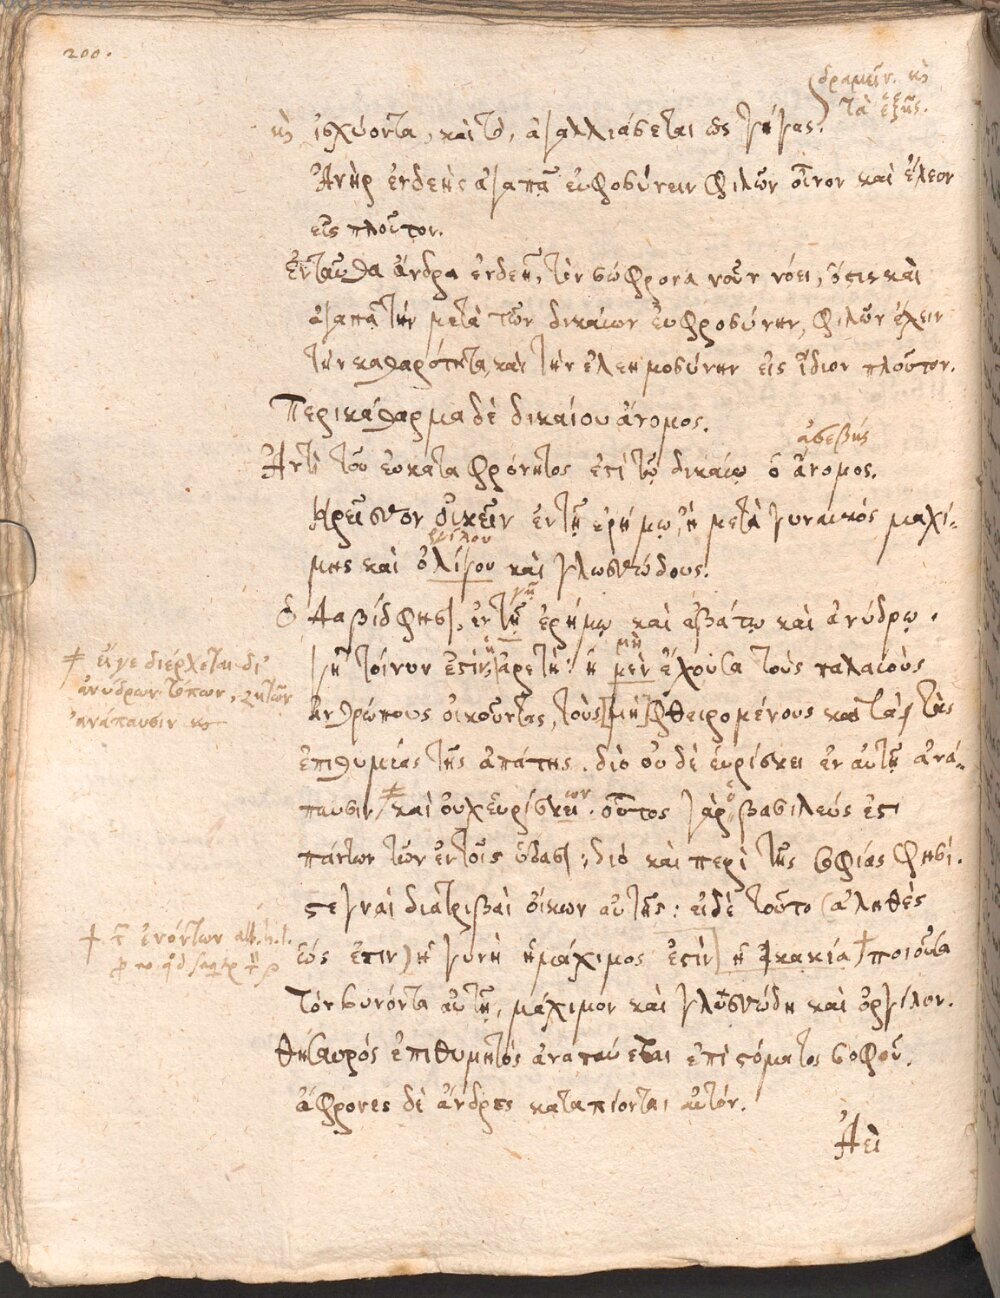 200.
δραμεῖν. κὶ
τὰ ἑξῆς.
κὶ ἰσχύοντα, καὶ τὸ, ἀγαλλιάσεται ὡς γίγας.
Ἀνὴρ ἐνδεὴς ἀγαπᾷ εὐφροσύνην φιλῶν οἶνον καὶ ἔλεον
εἰς πλοῦτον.
Ἐνταῦθα ἄνδρα ἐνδεῆ, τὸν σώφρονα νοῦν νόει, ὅστις καὶ
ἀγαπᾷ τὴν μετὰ τῶν δικαίων εὐφροσύνην, φιλῶν ἔχειν
τὴν καθαρότητα, καὶ τὴν ἐλεημοσύνην εἰς ἴδιον πλοῦτον.
Περικάθαρμα δὲ δικαίου ἄνομος.
ἀσεβής
Ἀντὶ τοῦ εὐκαταφρόνητος ἐστὶ τῷ δικαίῳ ὁ ἄνομος.
Κρεῖσσον οἰκεῖν ἐν τῇ ἐρήμῳ, ἢ μετὰ γυναικός μαχί-
μης καὶ ὀλίγου καὶ γλωσσώδους.
γῇ
ὁ Δαβίδ φησὶ, ἐν τῇ ἐρήμῳ καὶ ἀβάτῳ καὶ ἀνύδρῳ.
μὴ
γῆ τοίνυν ἐστὶν ἡ ἀρετὴ: ἡ μὲν ἔχουσα τοὺς παλαιοὺς
‡ εἴγε διέρχεται δι'
ἀνύδρων τόπων, ζητῶν
ἀνάπαυσιν κὶ
ἀνθρώπους οἰκοῦντας, τοὺς [μὴ] φθειρομένους κατὰ τὰς
ἐπιθυμίας τῆς ἀπάτης. διὸ οὐδὲ εὑρίσκει ἐν αὐτῇ ἀνά-
παυσιν ‡ καὶ οὐχ εὑρίσκει. οὗτος γὰρ ὁ βασιλεύς ἐστι
πάντων τῶν ἐν τοῖς ὕδασι; διὸ καὶ περὶ τῆς σοφίας φησί.
στεγναὶ διατριβαὶ οἴκων αὐτῆς: εἰ δὲ τοῦτο (ἀληθὲς
† ἐνόντων
ὡς ἔστιν) ἡ γυνὴ ἡ μάχιμος ἐστὶν ἡ κακία † ποιοῦσα
τὸν συνόντα αὐτῇ, μάχιμον καὶ γλωσσώδη καὶ ὀργίλον.
Θησαυρός ἐπιθυμητὸς ἀναπαύεται ἐπὶ στόματος σοφοῦ.
ἄφρονες δὲ ἄνδρες καταπίονται αὐτόν.
Ἀεὶ